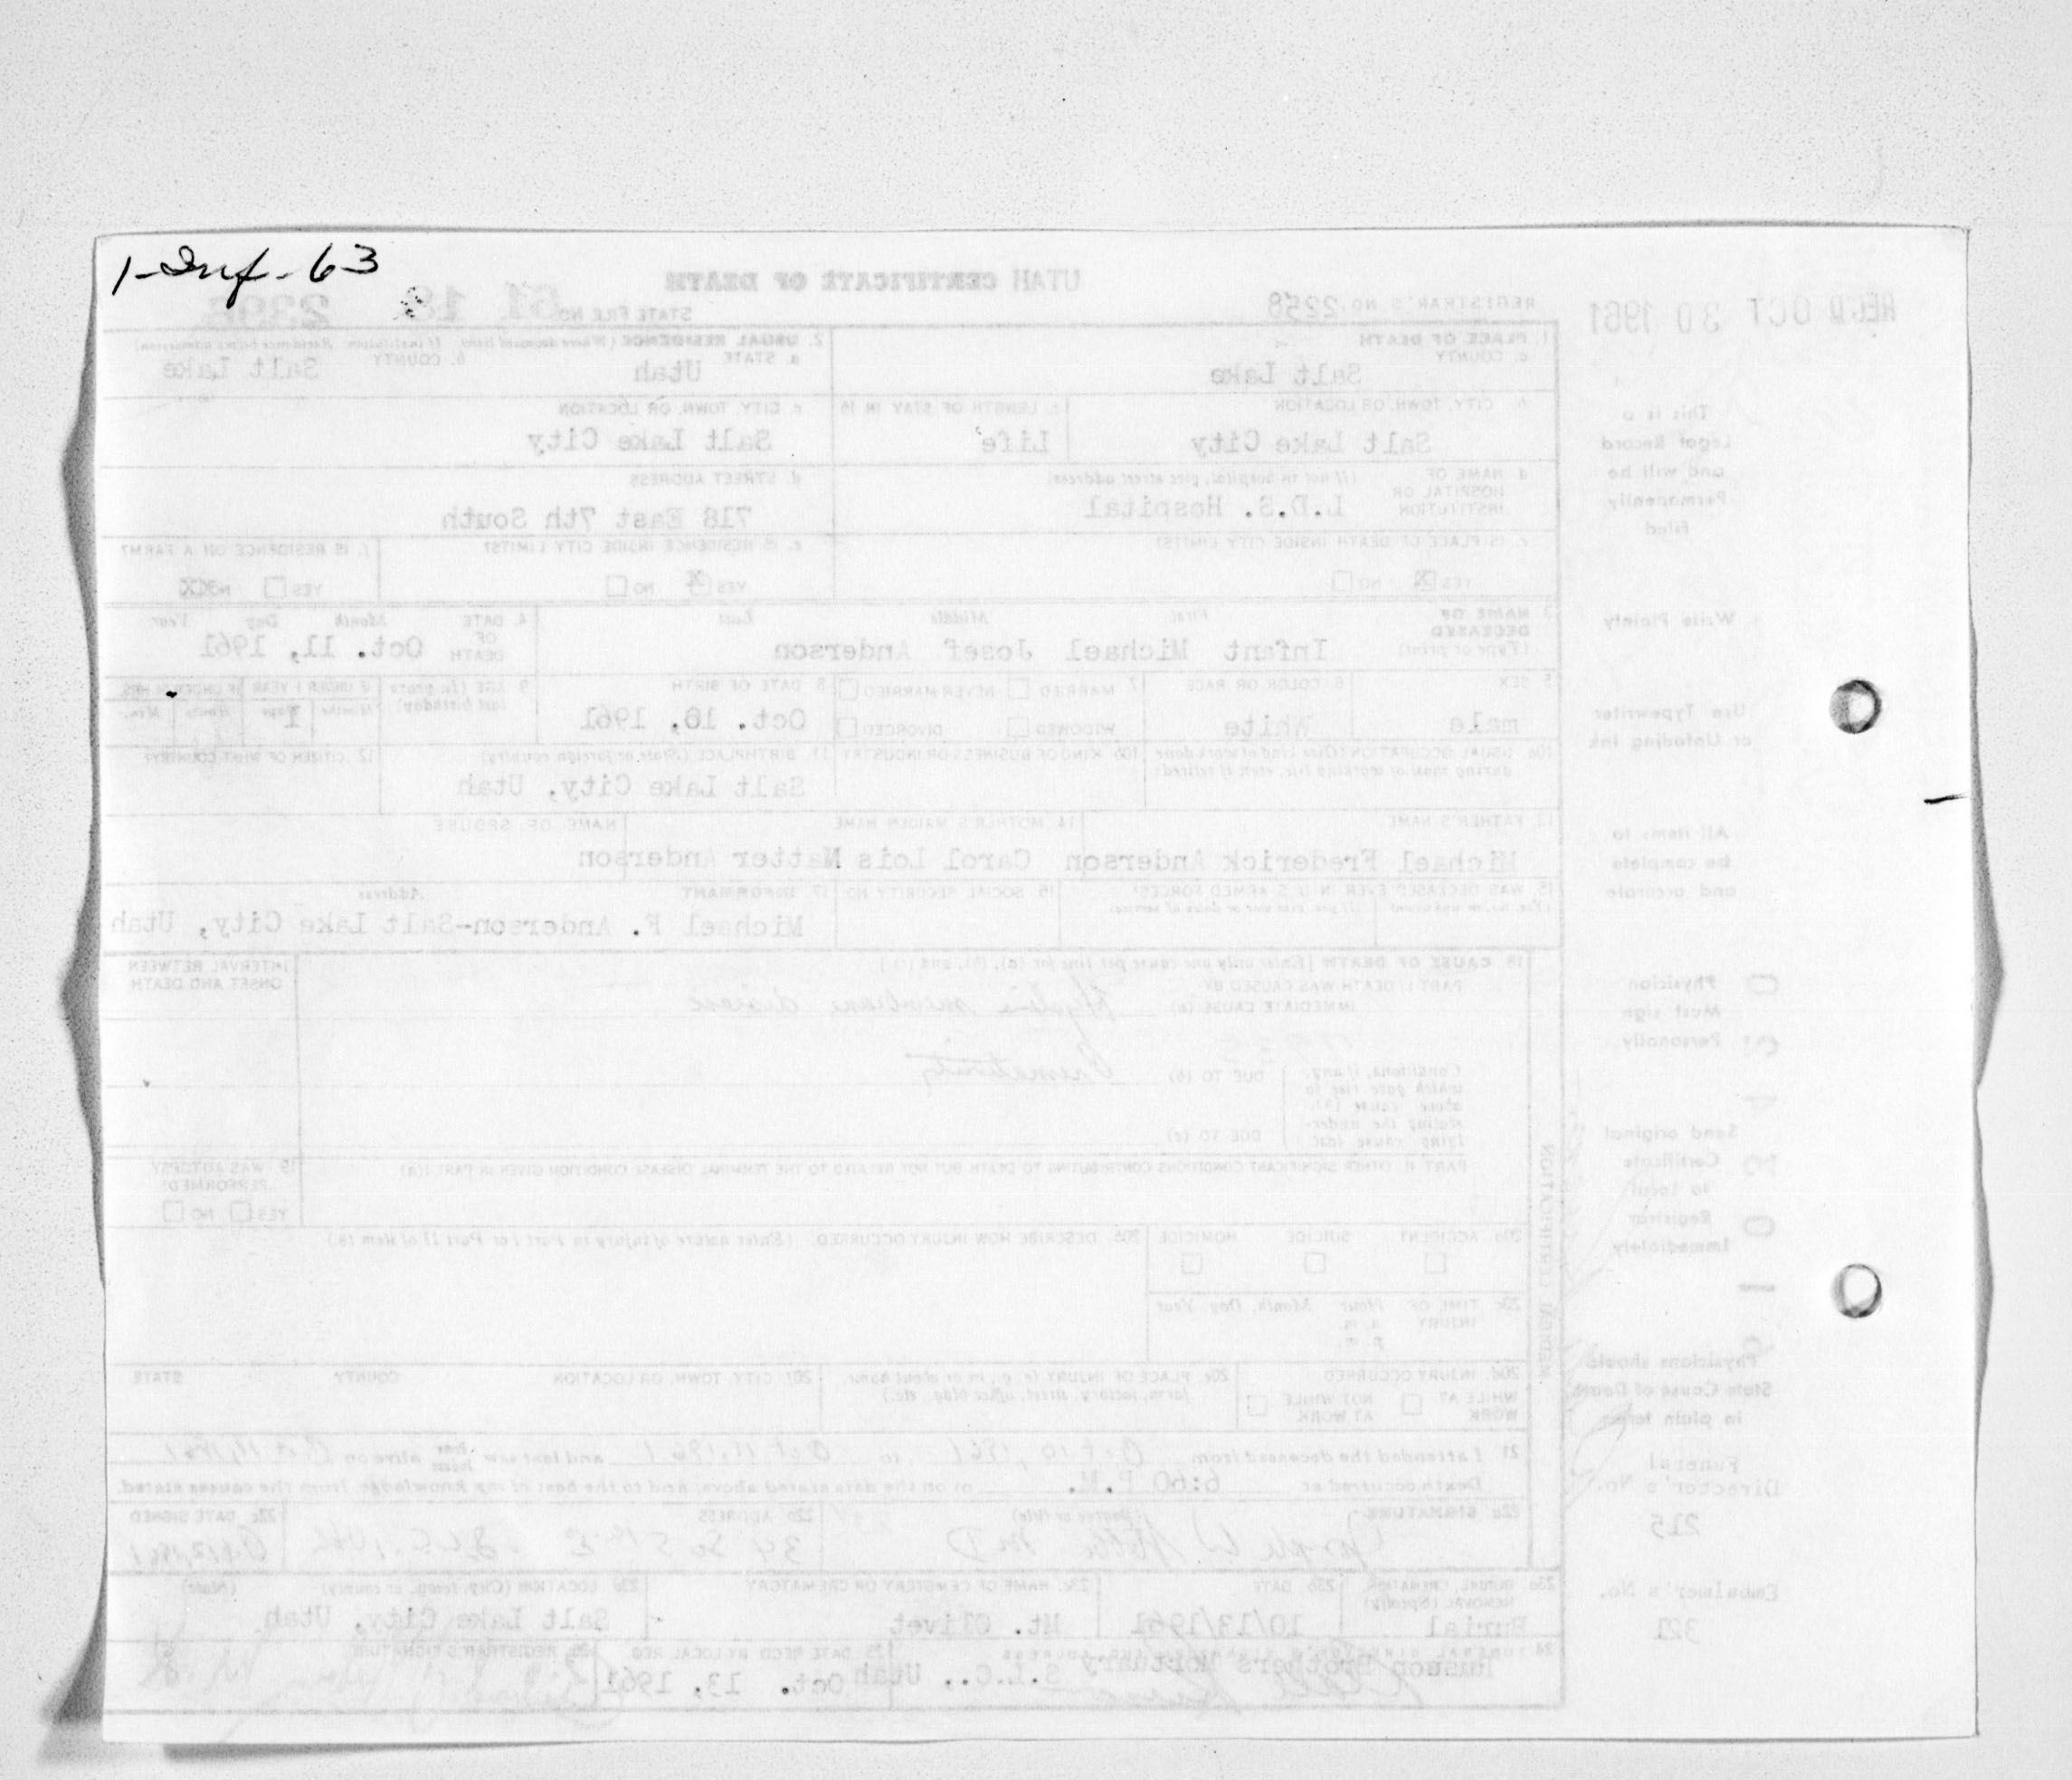 1-Inf-63
UTAH CERTIFICATE OF DEATH
REC'D OCT 30 1961
REGISTRAR'S NO. 2258
STATE FILE NO. 61 18
1. PLACE OF DEATH
a. COUNTY
Salt Lake
2. USUAL RESIDENCE (Where deceased lived. If institution: Residence before admission)
a. STATE Utah
b. COUNTY Salt Lake
b. CITY, TOWN, OR LOCATION
Salt Lake City
c. LENGTH OF STAY IN 1b
Life
c. CITY, TOWN, OR LOCATION
Salt Lake City
d. NAME OF HOSPITAL OR INSTITUTION (If not in hospital, give street address)
L.D.S. Hospital
d. STREET ADDRESS
718 East 7th South
e. IS PLACE OF DEATH INSIDE CITY LIMITS?
YES X NO
e. IS RESIDENCE INSIDE CITY LIMITS?
YES X NO
f. IS RESIDENCE ON A FARM?
YES NO XX
3. NAME OF DECEASED (Type or print)
First Middle Last
Infant Michael Josef Anderson
4. DATE OF DEATH
Month Day Year
Oct. 11, 1961
5. SEX
male
6. COLOR OR RACE
White
7. MARRIED NEVER MARRIED
WIDOWED DIVORCED
8. DATE OF BIRTH
Oct. 10, 1961
9. AGE (In years last birthday)
IF UNDER 1 YEAR
IF UNDER 24 HRS.
Months Days Hours Min.
1
10a. USUAL OCCUPATION (Give kind of work done during most of working life, even if retired)
10b. KIND OF BUSINESS OR INDUSTRY
11. BIRTHPLACE (State or foreign country)
Salt Lake City, Utah
12. CITIZEN OF WHAT COUNTRY?
13. FATHER'S NAME
Michael Frederick Anderson
14. MOTHER'S MAIDEN NAME
Carol Lois Natter Anderson
NAME OF SPOUSE
15. WAS DECEASED EVER IN U.S. ARMED FORCES?
(Yes, no, or unknown) (If yes, give war or dates of service)
16. SOCIAL SECURITY NO.
17. INFORMANT Address
Michael F. Anderson-Salt Lake City, Utah
18. CAUSE OF DEATH [Enter only one cause per line for (a), (b), and (c).]
PART I. DEATH WAS CAUSED BY
IMMEDIATE CAUSE (a) Hyaline membrane disease
INTERVAL BETWEEN ONSET AND DEATH
Conditions, if any, which gave rise to above cause (a), stating the underlying cause last
DUE TO (b) Prematurity
DUE TO (c)
PART II. OTHER SIGNIFICANT CONDITIONS CONTRIBUTING TO DEATH BUT NOT RELATED TO THE TERMINAL DISEASE CONDITION GIVEN IN PART I(a)
19. WAS AUTOPSY PERFORMED?
YES NO
MEDICAL CERTIFICATION
20a. ACCIDENT SUICIDE HOMICIDE
20b. DESCRIBE HOW INJURY OCCURRED. (Enter nature of injury in Part I or Part II of item 18.)
20c. TIME OF INJURY Hour Month, Day, Year
a. m.
p. m.
20d. INJURY OCCURRED
WHILE AT WORK NOT WHILE AT WORK
20e. PLACE OF INJURY (e. g., in or about home, farm, factory, street, office bldg., etc.)
20f. CITY, TOWN, OR LOCATION COUNTY STATE
21. I attended the deceased from Oct 10, 1961 to Oct 11, 1961 and last saw him alive on Oct 11, 1961
Death occurred at 6:60 P.M. on the date stated above; and to the best of my knowledge, from the causes stated.
22a. SIGNATURE (Degree or title)
MD
22b. ADDRESS
22c. DATE SIGNED
23a. BURIAL, CREMATION, REMOVAL (Specify)
Burial
23b. DATE
10/13/1961
23c. NAME OF CEMETERY OR CREMATORY
Mt. Olivet
23d. LOCATION (City, town, or county) (State)
Salt Lake City, Utah
24. FUNERAL DIRECTOR'S SIGNATURE AND ADDRESS
Brothers Mortuary S.L.C., Utah
25. DATE RECD BY LOCAL REG.
Oct. 13, 1961
26. REGISTRAR'S SIGNATURE
This is a Legal Record and will be Permanently Filed
Write Plainly
Use Typewriter or Unfading Ink
All items to be complete and accurate
Physician Must sign Personally
Send original Certificate to local Registrar Immediately
Physicians should State Cause of Death in plain terms
Funeral Director's No.
215
Embalmer's No.
321